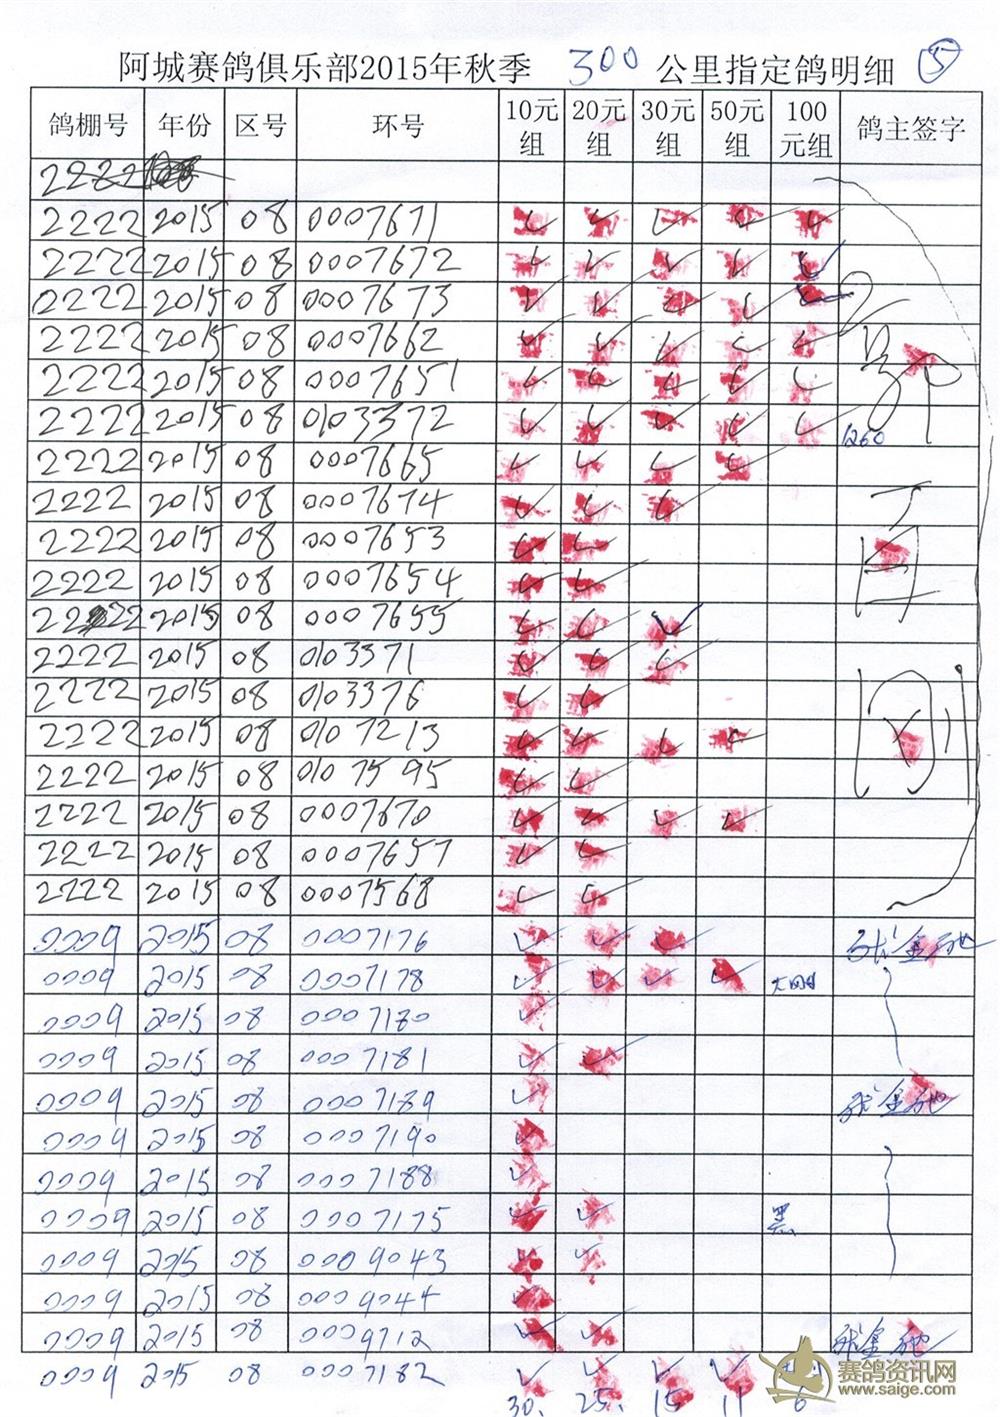 阿城赛鸽俱乐部2015年秋季 300 公里指定鸽明细 ⑤
鸽棚号 年份 区号 环号 10元组 20元组 30元组 50元组 100元组 鸽主签字
2222
2222 2015 08 0007671 ✓ ✓ ✓ ✓ ✓
2222 2015 08 0007672 ✓ ✓ ✓ ✓ ✓
0222 2015 08 0007673 ✓ ✓ ✓ ✓ ✓
2222 2015 08 0007662 ✓ ✓ ✓ ✓ ✓
2222 2015 08 0007651 ✓ ✓ ✓ ✓ ✓
2222 2015 08 0103372 ✓ ✓ ✓ ✓ ✓ 1260
2222 2015 08 0007665 ✓ ✓ ✓ ✓
2222 2015 08 0007674 ✓ ✓ ✓
2222 2015 08 0007653 ✓ ✓
2222 2015 08 0007654 ✓ ✓
2222 2015 08 0007655 ✓ ✓ ✓
2222 2015 08 0103371 ✓ ✓ ✓
2222 2015 08 0103376 ✓ ✓
2222 2015 08 0107213 ✓ ✓ ✓ ✓
2222 2015 08 0107595 ✓ ✓
2222 2015 08 0007670 ✓ ✓ ✓ ✓
2222 2015 08 0007657 ✓ ✓
2222 2015 08 0007568 ✓ ✓
0009 2015 08 0007176 ✓ ✓ ✓
0009 2015 08 0007178 ✓ ✓ ✓ ✓
0009 2015 08 0007180 ✓
0009 2015 08 0007181 ✓ ✓
0009 2015 08 0007189 ✓
0009 2015 08 0007190 ✓
0009 2015 08 0007188 ✓
0009 2015 08 0007175 ✓ ✓ 黑
0009 2015 08 0009043 ✓ ✓
0009 2015 08 0009044 ✓
0009 2015 08 0009712 ✓ ✓
0009 2015 08 0007182 ✓ ✓ ✓ ✓
30. 25. 15 11 6
赛鸽资讯网
www.saige.com